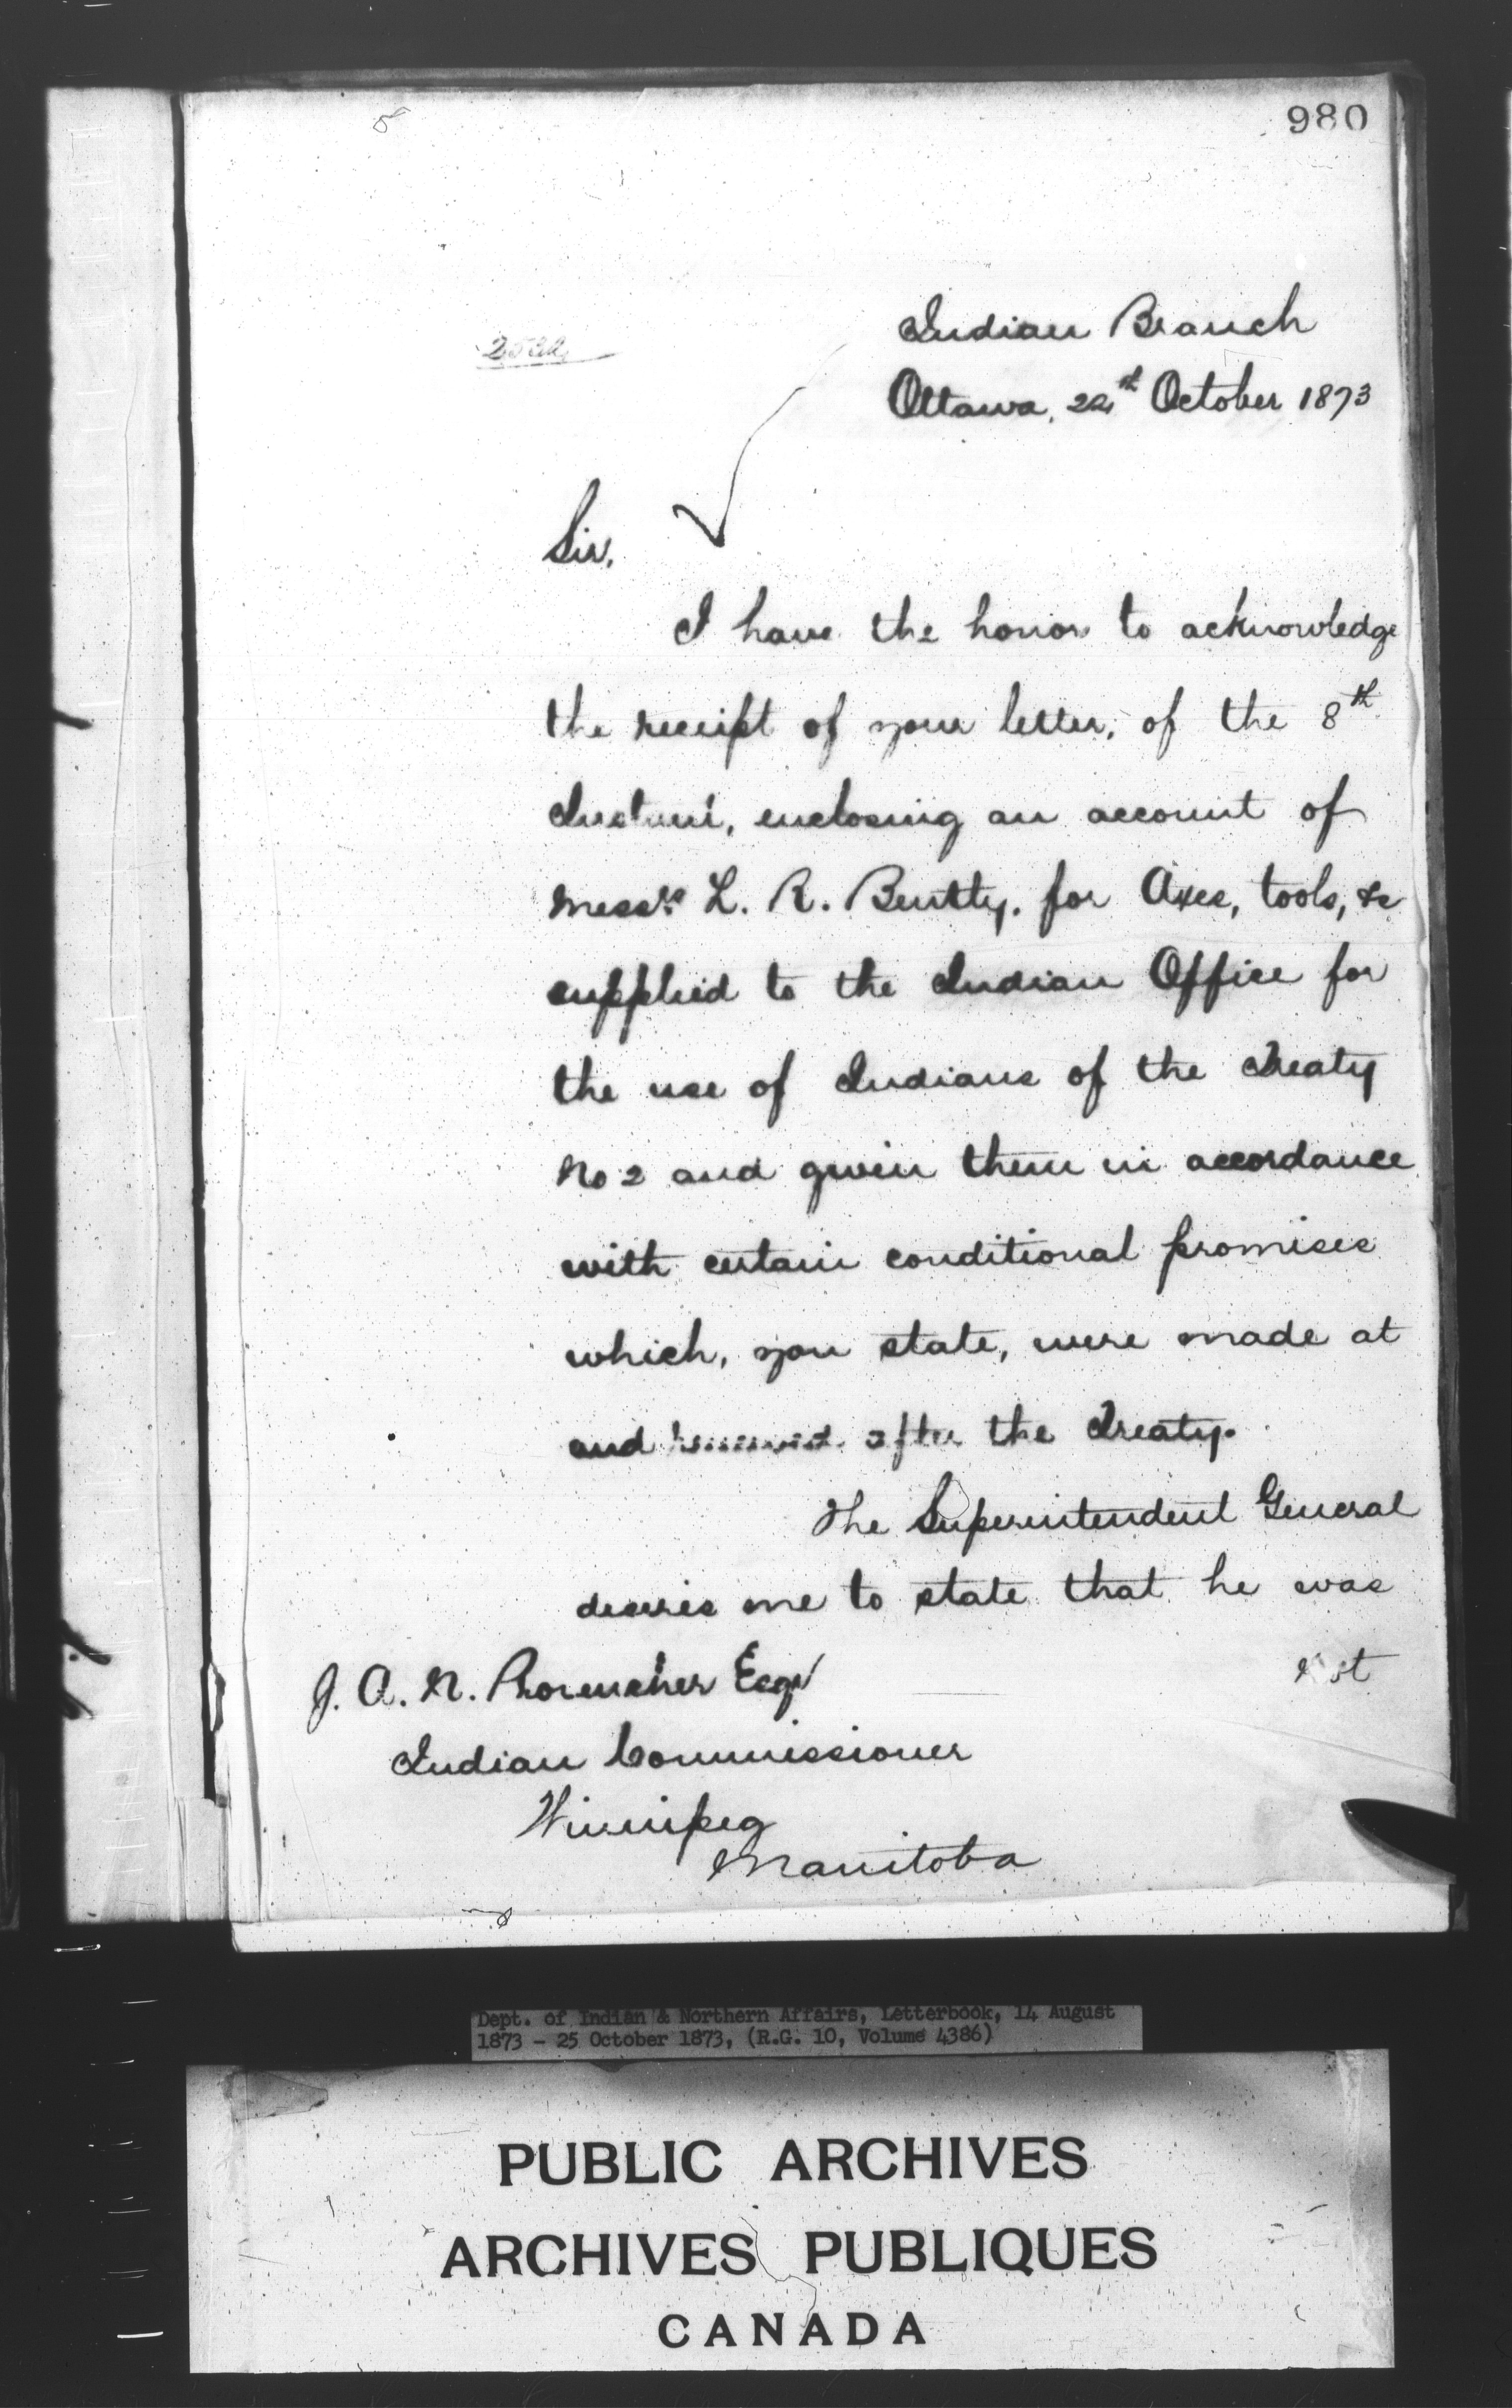 980
Indian Branch
Ottawa, 24th October 1873
Sir,
I have the honor to acknowledge
the receipt of your letter, of the 8th
Instant, enclosing an account of
Messrs L. R. Bentley, for Axes, tools, &c
supplied to the Indian Office for
the use of Indians of the Treaty
No 2 and given them in accordance
with certain conditional promises
which, you state, were made at
and after the Treaty.
The Superintendent General
desires me to state that he was
not
J. A. N. Provencher Esqr
Indian Commissioner
Winnipeg
Manitoba
Dept. of Indian & Northern Affairs, Letterbook, 14 August
1873 - 25 October 1873, (R.G. 10, Volume 4386)
PUBLIC ARCHIVES
ARCHIVES PUBLIQUES
CANADA